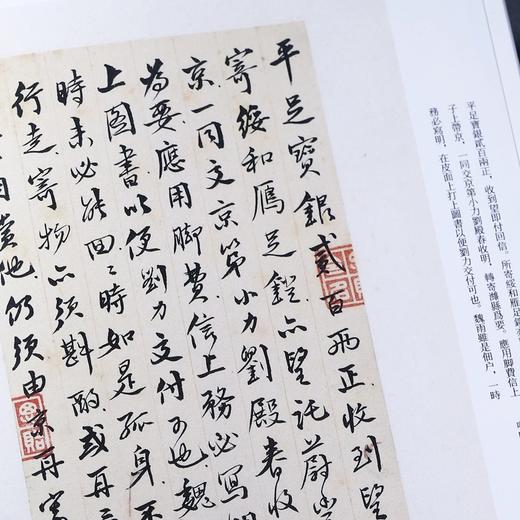 平足寶銀貳百兩正，收到望即付回信。所寄綏和雁足鐙
子上帶京，一同交京第小力劉殿春收明，轉寄濰縣爲要。應用脚費信上
務必寫明，在皮面上打上圖書以便劉力交付可也。魏雨雖是佃户，一時
平足寶銀貳百兩正收到望
寄綏和雁足鐙亦望託蔚
京一同交京第小力劉殿春收
為要應用脚費信上務必寫
上圖書以便劉力交付可也魏
時未必能回〻時如是孤身不
行走寄物亦須斟酌或再
賞他仍須由京再寄